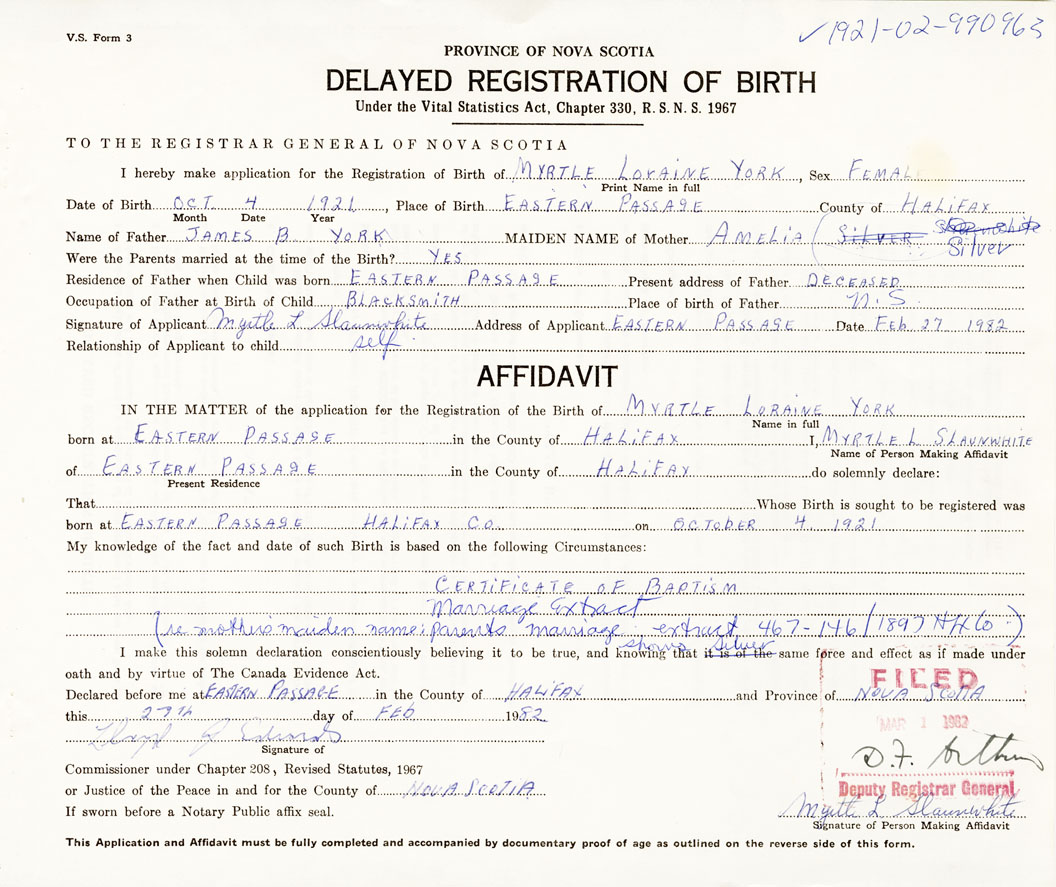 V.S. Form 3
✓1921-02-990963
PROVINCE OF NOVA SCOTIA
DELAYED REGISTRATION OF BIRTH
Under the Vital Statistics Act, Chapter 330, R.S.N.S. 1967
TO THE REGISTRAR GENERAL OF NOVA SCOTIA
I hereby make application for the Registration of Birth of MYRTLE LORAINE YORK, Sex FEMALE
Print Name in full
Date of Birth OCT 4 1921, Place of Birth EASTERN PASSAGE County of HALIFAX
Month Date Year
Name of Father JAMES B YORK MAIDEN NAME of Mother AMELIA (SILVER Slaunwhite
Silver
Were the Parents married at the time of the Birth? YES
Residence of Father when Child was born EASTERN PASSAGE Present address of Father DECEASED
Occupation of Father at Birth of Child BLACKSMITH Place of birth of Father N.S
Signature of Applicant Myrtle L Slaunwhite Address of Applicant EASTERN PASSAGE Date FEB 27 1982
Relationship of Applicant to child self
AFFIDAVIT
IN THE MATTER of the application for the Registration of the Birth of MYRTLE LORAINE YORK
Name in full
born at EASTERN PASSAGE in the County of HALIFAX I, MYRTLE L SLAUNWHITE
Name of Person Making Affidavit
of EASTERN PASSAGE in the County of HALIFAX do solemnly declare:
Present Residence
That Whose Birth is sought to be registered was
born at EASTERN PASSAGE HALIFAX CO. on OCTOBER 4 1921
My knowledge of the fact and date of such Birth is based on the following Circumstances:
CERTIFICATE OF BAPTISM
Marriage Extract
(re mother's maiden name: parents marriage extract 467-146/1897 Hfx Co)
shows Silver
I make this solemn declaration conscientiously believing it to be true, and knowing that it is of the same force and effect as if made under
oath and by virtue of The Canada Evidence Act.
FILED
Declared before me at EASTERN PASSAGE in the County of HALIFAX and Province of NOVA SCOTIA
this 27th day of FEB 1982
MAR 1 1982
Signature of
D.F. Arthur
Commissioner under Chapter 208, Revised Statutes, 1967
or Justice of the Peace in and for the County of NOVA SCOTIA
Deputy Registrar General
If sworn before a Notary Public affix seal.
Myrtle L Slaunwhite
Signature of Person Making Affidavit
This Application and Affidavit must be fully completed and accompanied by documentary proof of age as outlined on the reverse side of this form.